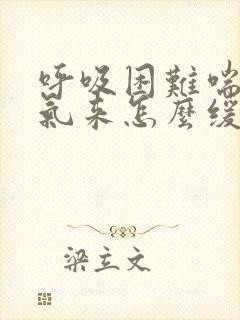 呼吸困難喘
氣来怎麼緩
梁立文